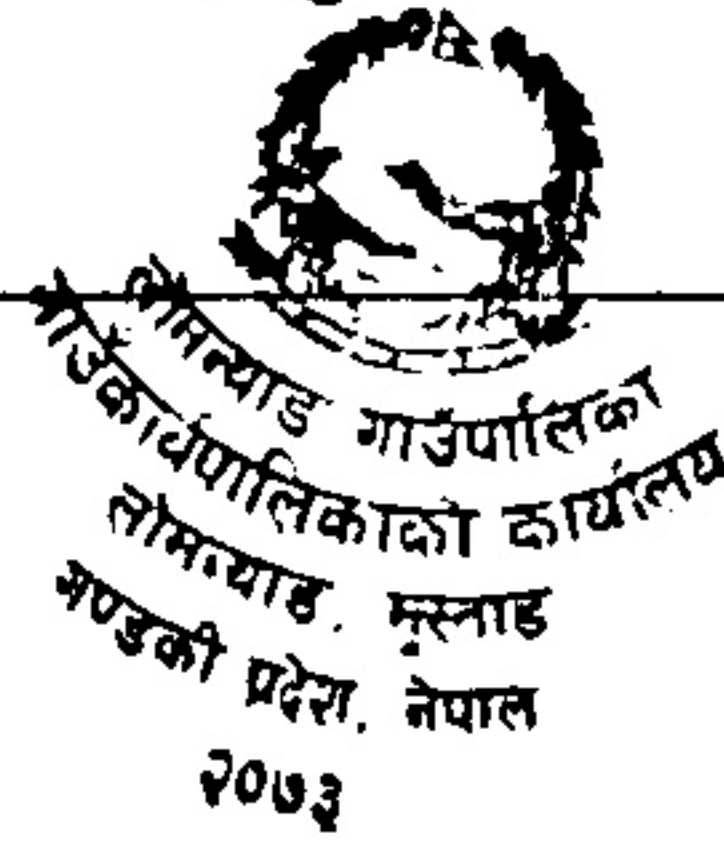 लोमन्थाङ गाउँपालिका
गाउँकार्यपालिकाको कार्यालय
लोमन्थाङ, मुस्ताङ
गण्डकी प्रदेश, नेपाल
२०७३